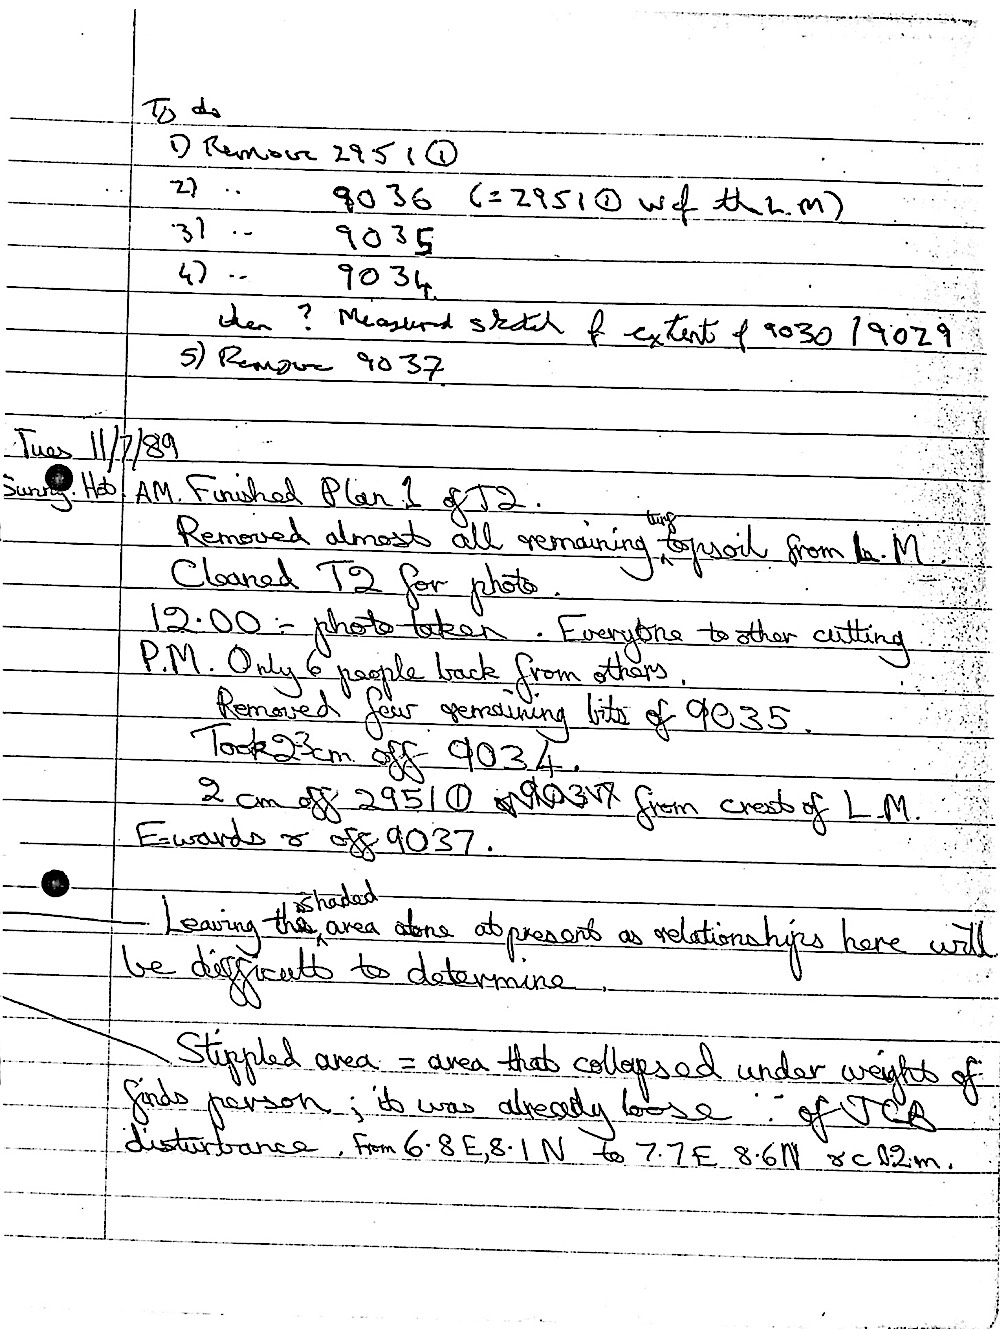 To do
1) Remove 2951 ①
2) " 9036 (= 2951 ① W of th L.M)
3) " 9035
4) " 9034
then ? Measured sketch of extent of 9030 / 9029
5) Remove 9037
Tues 11/7/89
Sunny. Hot AM. Finished Plan 1 of T2.
Removed almost all remaining turf topsoil from L.M.
Cleaned T2 for photo.
12.00 :- photo taken. Everyone to other cutting
P.M. Only 6 people back from others.
Removed few remaining bits of 9035.
Took 2-3cm off 9034.
2 cm off 2951 ① from crest of L.M.
E-wards & off 9037.
Leaving this shaded area alone at present as relationships here will
be difficult to determine.
Stippled area = area that collapsed under weight of
finds person; it was already loose ∵ of JCB
disturbance. From 6.8E, 8.1N to 7.7E 8.6N & c 0.2m.